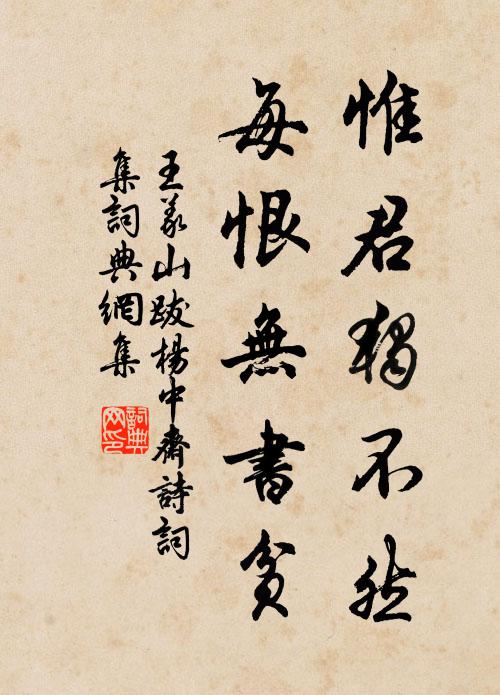 惟君獨不然
每恨無書貧
王義山跋楊中齋詩詞
集詞典網集
詞典網印